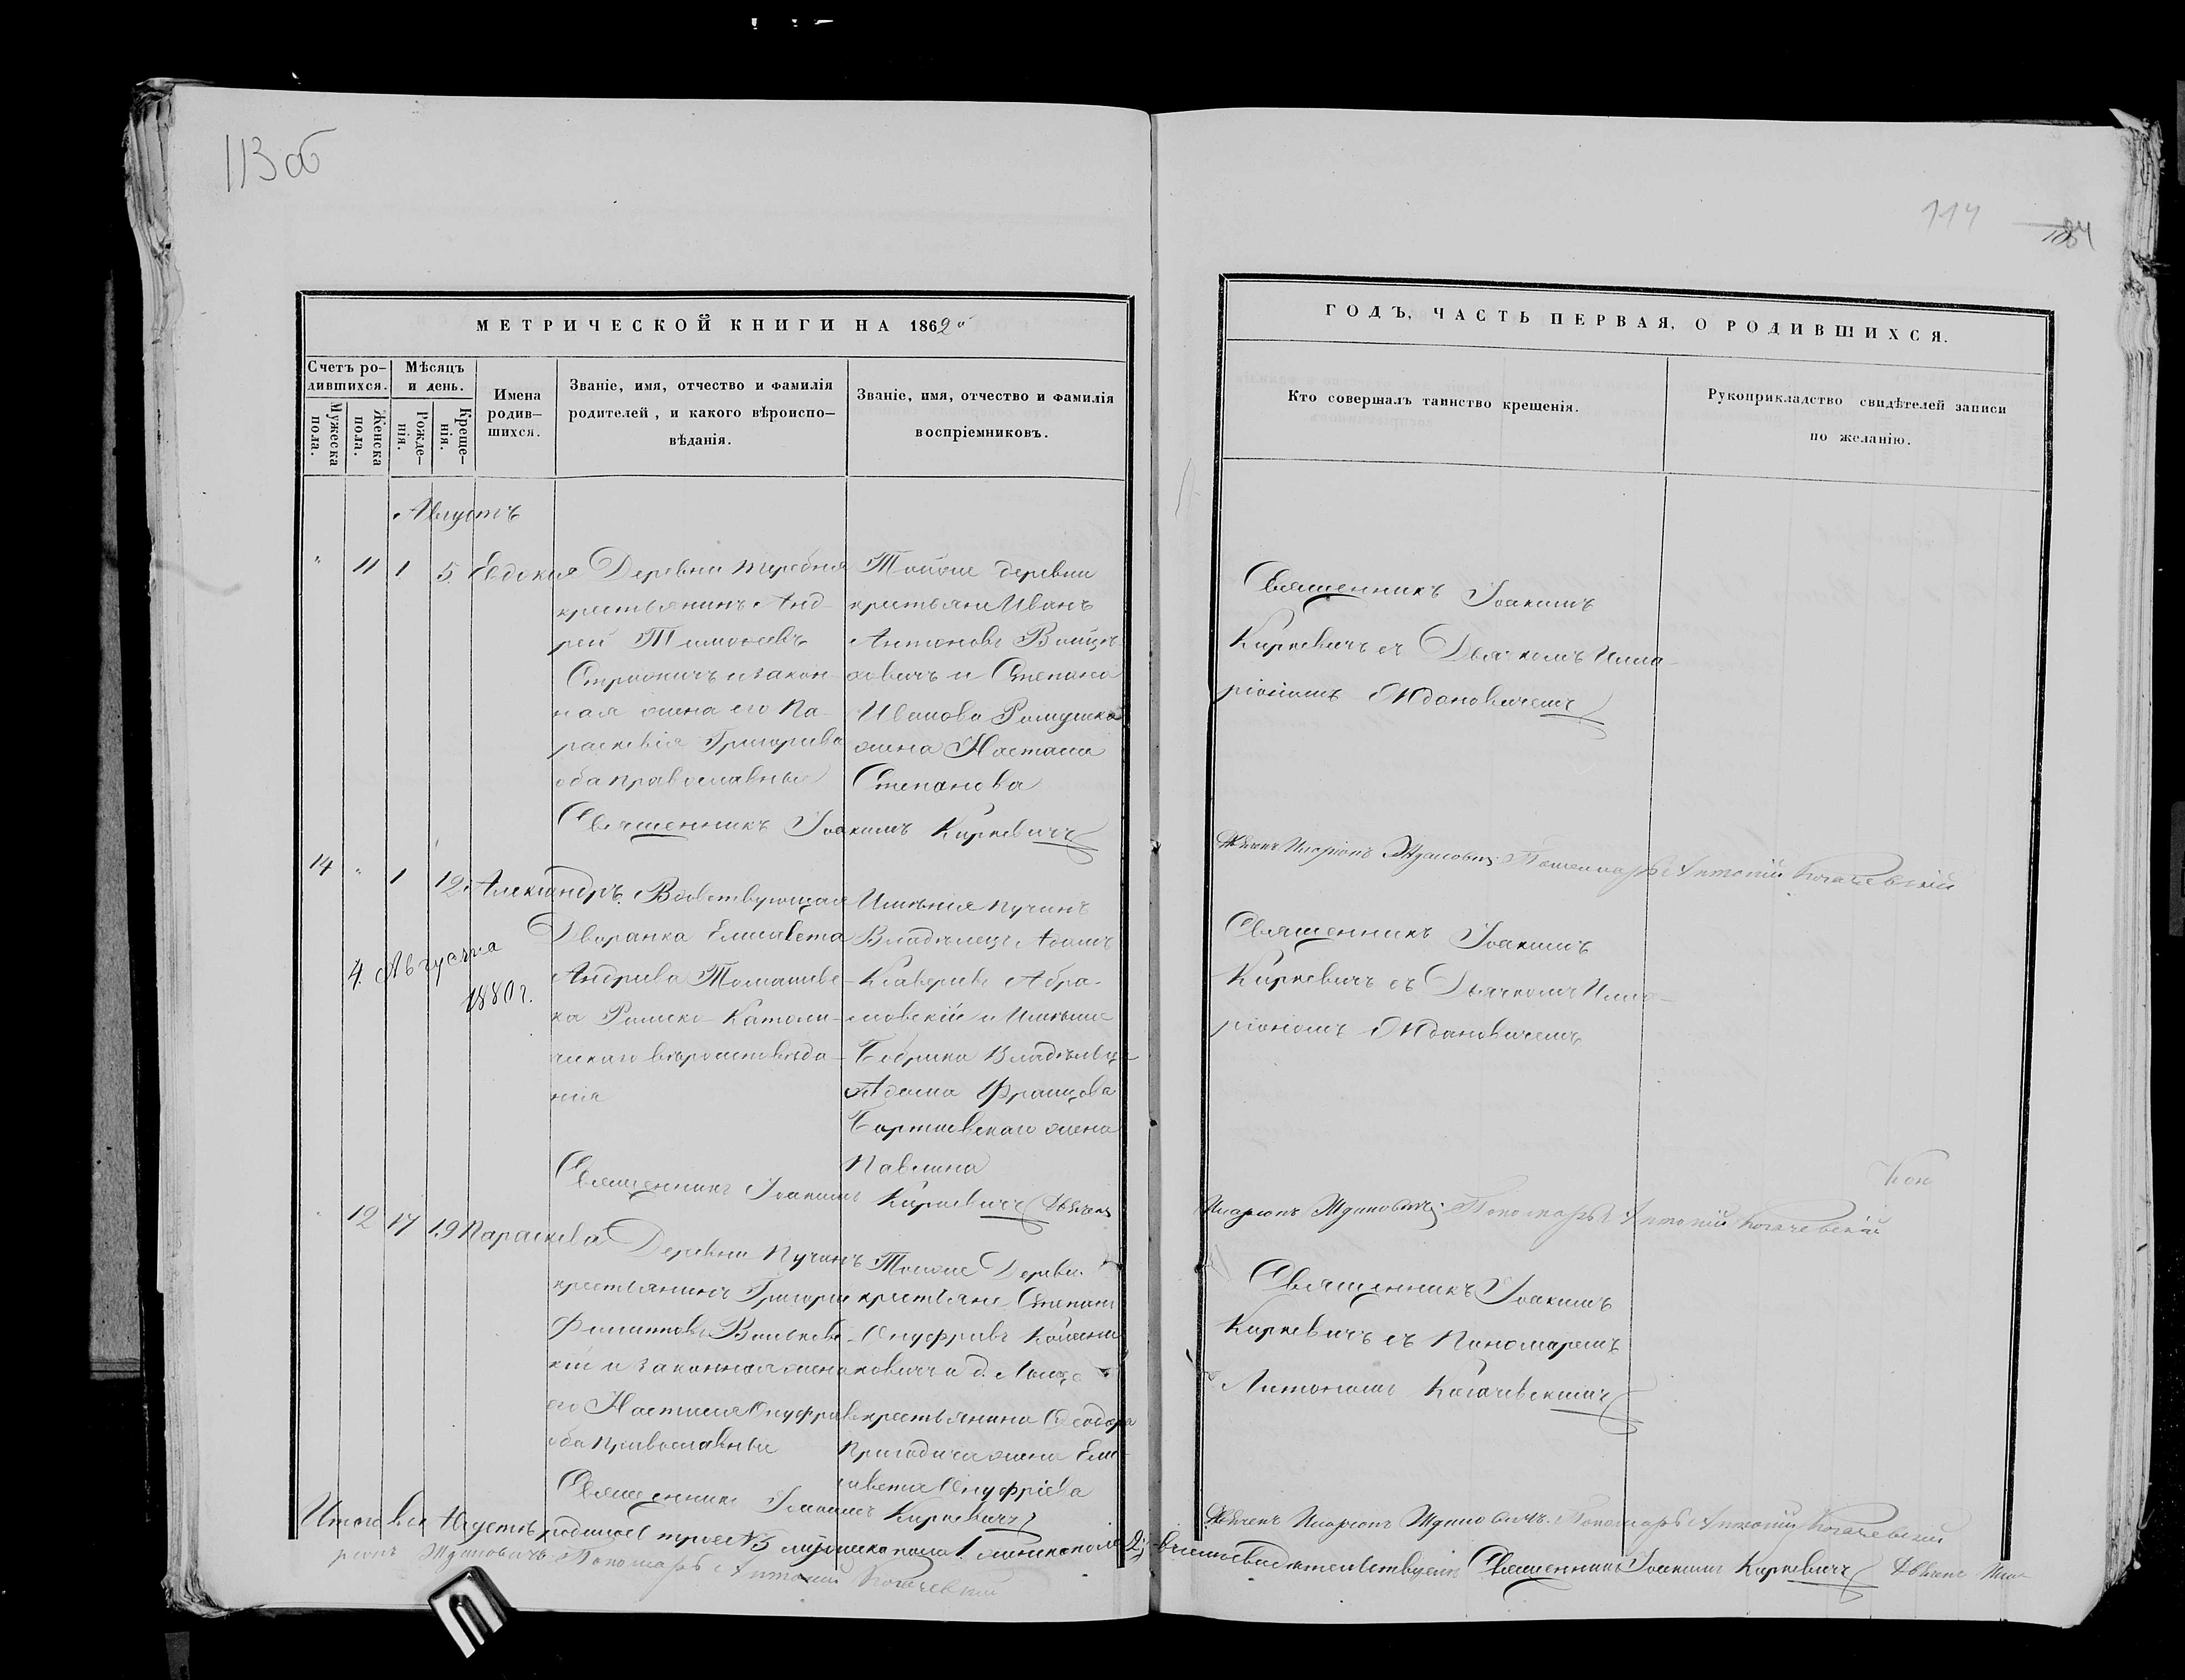 113 об
114
МЕТРИЧЕСКОЙ КНИГИ НА 1862й
Счетъ ро-
дившихся.
Мужеска
пола.
Женска
пола.
Мѣсяцъ
и день.
Рожде-
нія.
Креще-
нія.
Имена
родив-
шихся.
Званіе, имя, отчество и фамилія
родителей, и какого вѣроиспо-
вѣданія.
Званіе, имя, отчество и фамилія
воспріемниковъ.
Августъ
" 11 1 5. Евдокия
Деревни
крестьянинъ Анд-
рей Тимофеевъ
и закон-
ная жена его Па-
раскевія Григорьева
оба православные
Тойже деревни
крестьяне Иванъ
Антоновъ Войцѣ-
ховичъ и Степана
Иванова Ромушка
жена Настасия
Степанова
Священникъ Іоакимъ Киркевичъ
14 " 1 12. Александръ.
4. Августа
1880 г.
Дворянка Елисавета
Андреева Томашевс-
ка Римско-Католи-
ческаго вѣроисповѣда-
нія
Имѣнія Пучинъ
Владѣлецъ Адамъ
Ксаверіевъ Абра-
мовскій и Имѣнія
Бобрика Владѣльца
Адама Францова
жена
Павлина
Священникъ Іоакимъ Киркевичъ Дьячекъ
" 12 17 19 Параскева
Деревни Пучинъ
крестьянинъ Григорій
Филиповъ Волькевс-
кій и законная жена
его Настасия Онуфріева
оба православные
Тойже Деревни
крестьяне Степанъ
Онуфріевъ
и д.
крестьянина Ѳеодора
Пригодича жена Ели-
савета Онуфріева
Священникъ Іоакимъ Киркевичъ
Итого въ Августѣ родилось трое №3 мужеска пола 1. женска пола 2;
ріонъ Ждановичъ. Пономарь Антоній Когачевскій
ГОДЪ, ЧАСТЬ ПЕРВАЯ, О РОДИВШИХСЯ.
Кто совершалъ таинство крещенія.
Рукоприкладство свидѣтелей записи
по желанію.
Священникъ Іоакимъ
Киркевичъ съ Дьячкомъ Илла-
ріономъ Ждановичемъ
Дьячекъ Иларіонъ Ждановичъ. Пономарь Антоній Когачевскій
Священникъ Іоакимъ
Киркевичъ съ Дьячкомъ Илла-
ріономъ Ждановичемъ
Ког
Иларіонъ Ждановичъ; Пономарь Антоній Когачевскій
Священникъ Іоакимъ
Киркевичъ съ Пономаремъ
Антоніемъ Когачевскимъ
Дьячекъ Иларіонъ Ждановичъ. Пономарь Антоній Когачевскій
въ чемъ свидѣтельствуемъ Священникъ Іоакимъ Киркевичъ Дьячекъ Ила-